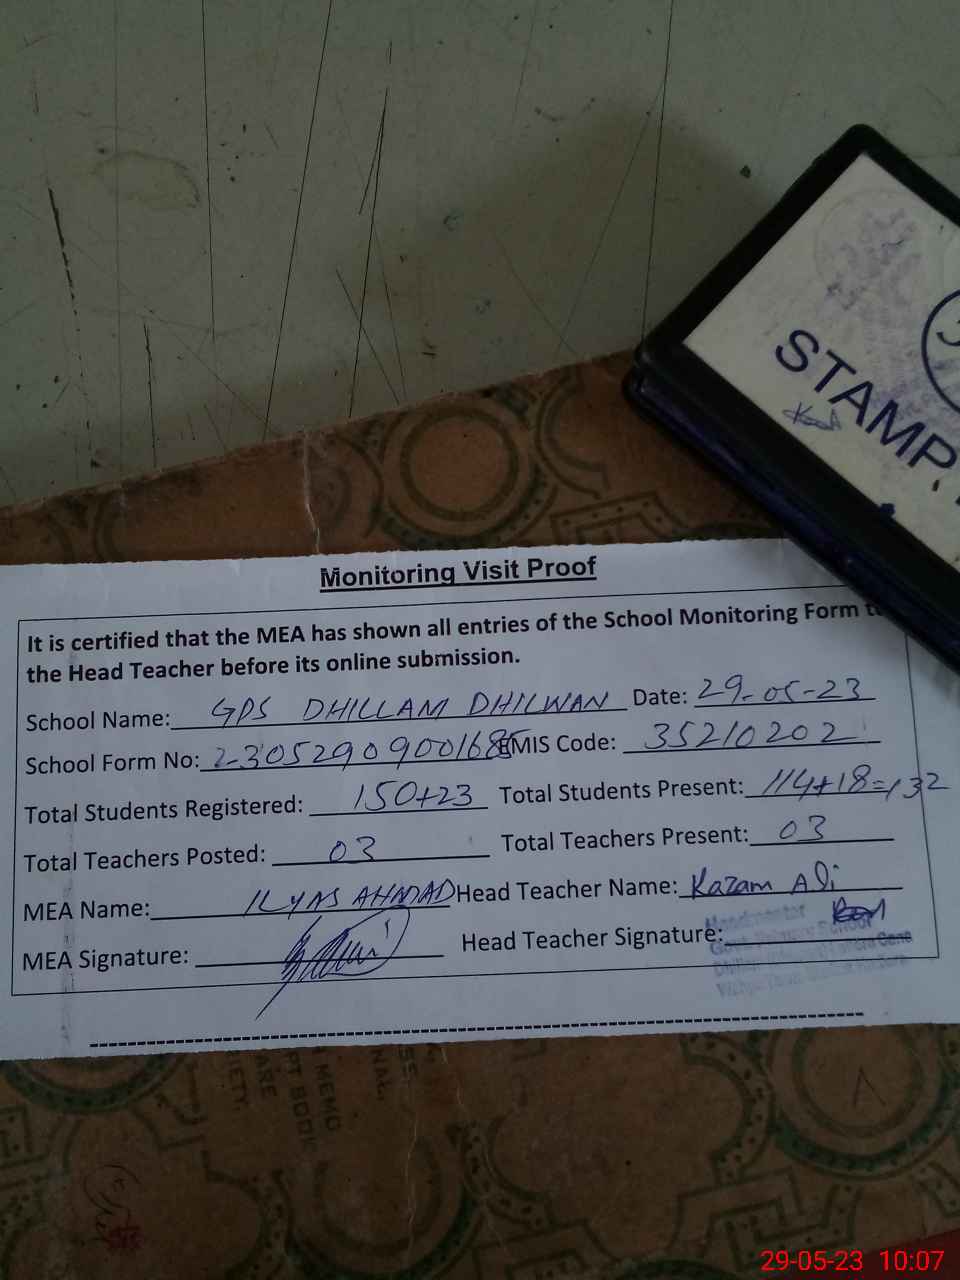 STAMP
Monitoring Visit Proof
It is certified that the MEA has shown all entries of the School Monitoring Form
the Head Teacher before its online submission.
School Name: GPS DHILLAM DHILWAN Date: 29-05-23
School Form No: EMIS Code: 35210202
Total Students Registered: 150+23 Total Students Present: 114+18=132
Total Teachers Posted: 03 Total Teachers Present: 03
MEA Name: ILYAS AHMAD Head Teacher Name: Kazam Ali
MEA Signature: Head Teacher Signature:
Headmaster
Govt. Primary School
MEMO
ARE
IETY.
29-05-23 10:07